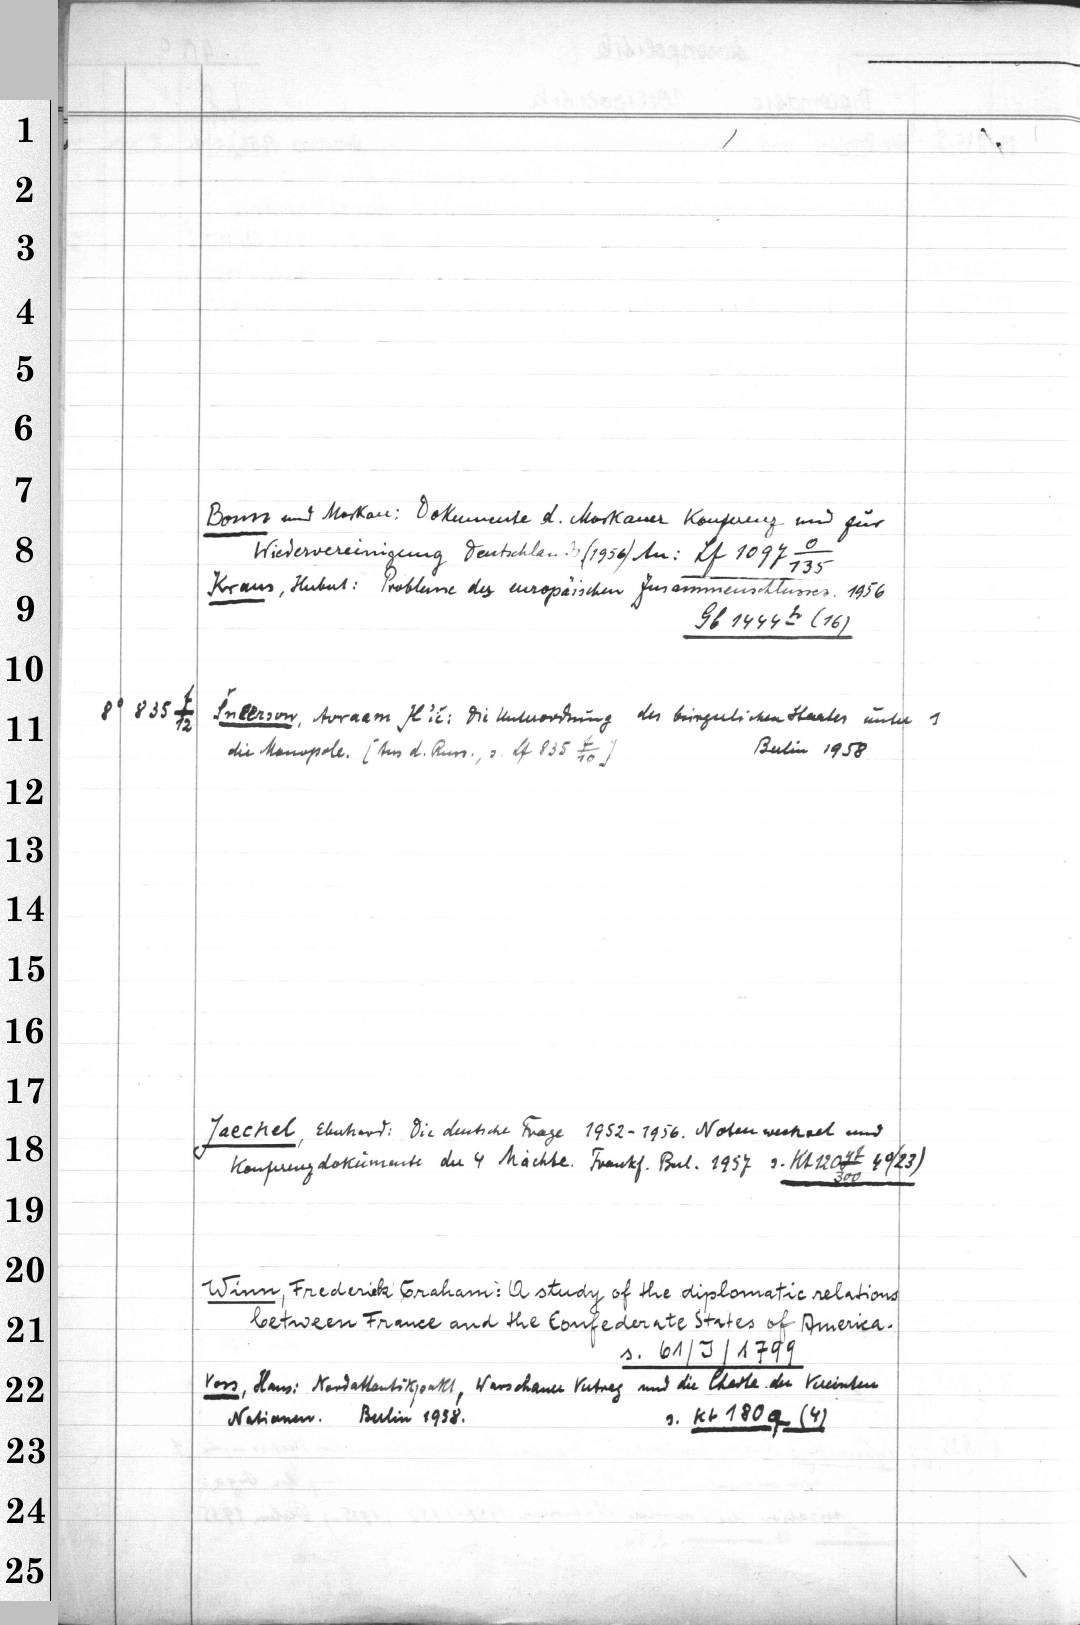 1
2
3
4
5
6
7
Bonn und Moskau: Dokumente d. Moskauer Konferenz und zur
8
Wiedervereinigung Deutschlands (1956) An: Lf 1097 0/135
9
Kraus, Hubert: Probleme des europäischen Zusammenschlusses. 1956
Gb 1444 (16)
10
11
8° 835 f/12 Avraam Il'ič: Die Unterordnung des bürgerlichen Staates unter 1
die Monopole. [Aus d. Russ., s. Lf 835 f/10] Berlin 1958
12
13
14
15
16
17
18
Jaeckel, Eberhard: Die deutsche Frage 1952-1956. Notenwechsel und
Konferenzdokumente der 4 Mächte. Frankf. Brl. 1957 s. Kt 120 /300 4°(23)
19
20
Winn, Frederick Graham: A study of the diplomatic relations
21
between France and the Confederate States of America.
s. 61/J/1799
22
Voss, Hans: Nordatlantikpakt, Warschauer Vertrag und die Charta der Vereinten
Nationen. Berlin 1958. s. Kt 180 q (4)
23
24
25